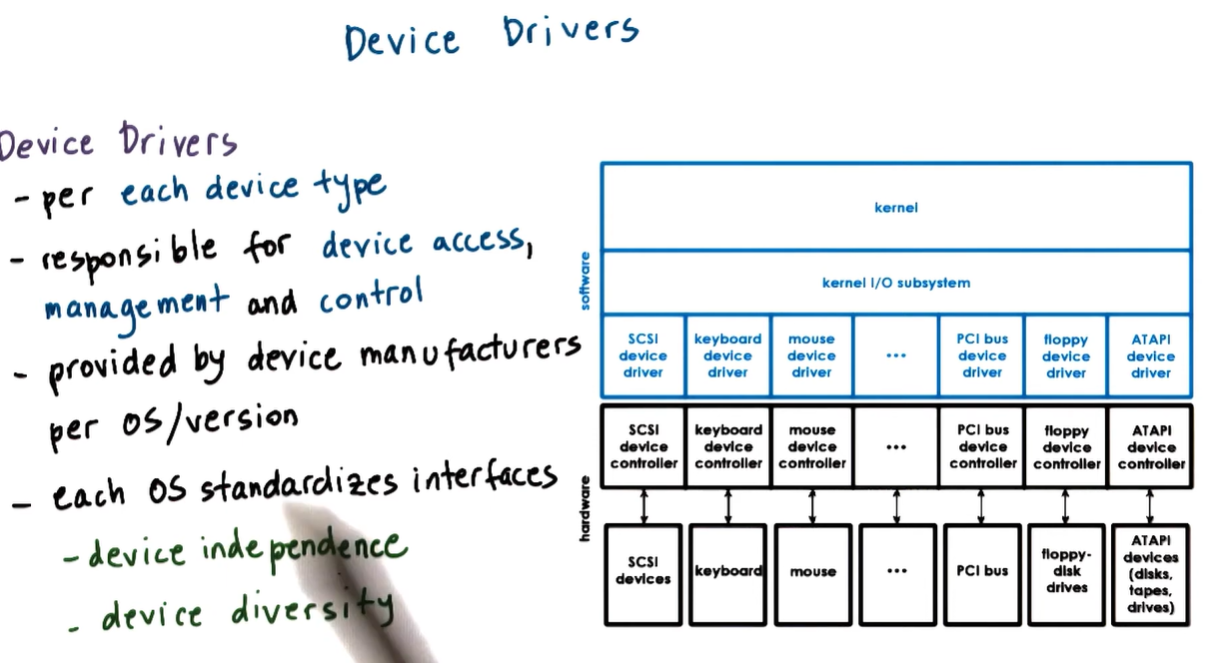 Device Drivers
Device Drivers
- per each device type
- responsible for device access,
management and control
- provided by device manufacturers
per OS/version
- each OS standardizes interfaces
- device independence
- device diversity
software
kernel
kernel I/O subsystem
SCSI
device
driver
keyboard
device
driver
mouse
device
driver
...
PCI bus
device
driver
floppy
device
driver
ATAPI
device
driver
hardware
SCSI
device
controller
keyboard
device
controller
mouse
device
controller
...
PCI bus
device
controller
floppy
device
controller
ATAPI
device
controller
SCSI
devices
keyboard
mouse
...
PCI bus
floppy-
disk
drives
ATAPI
devices
(disks,
tapes,
drives)